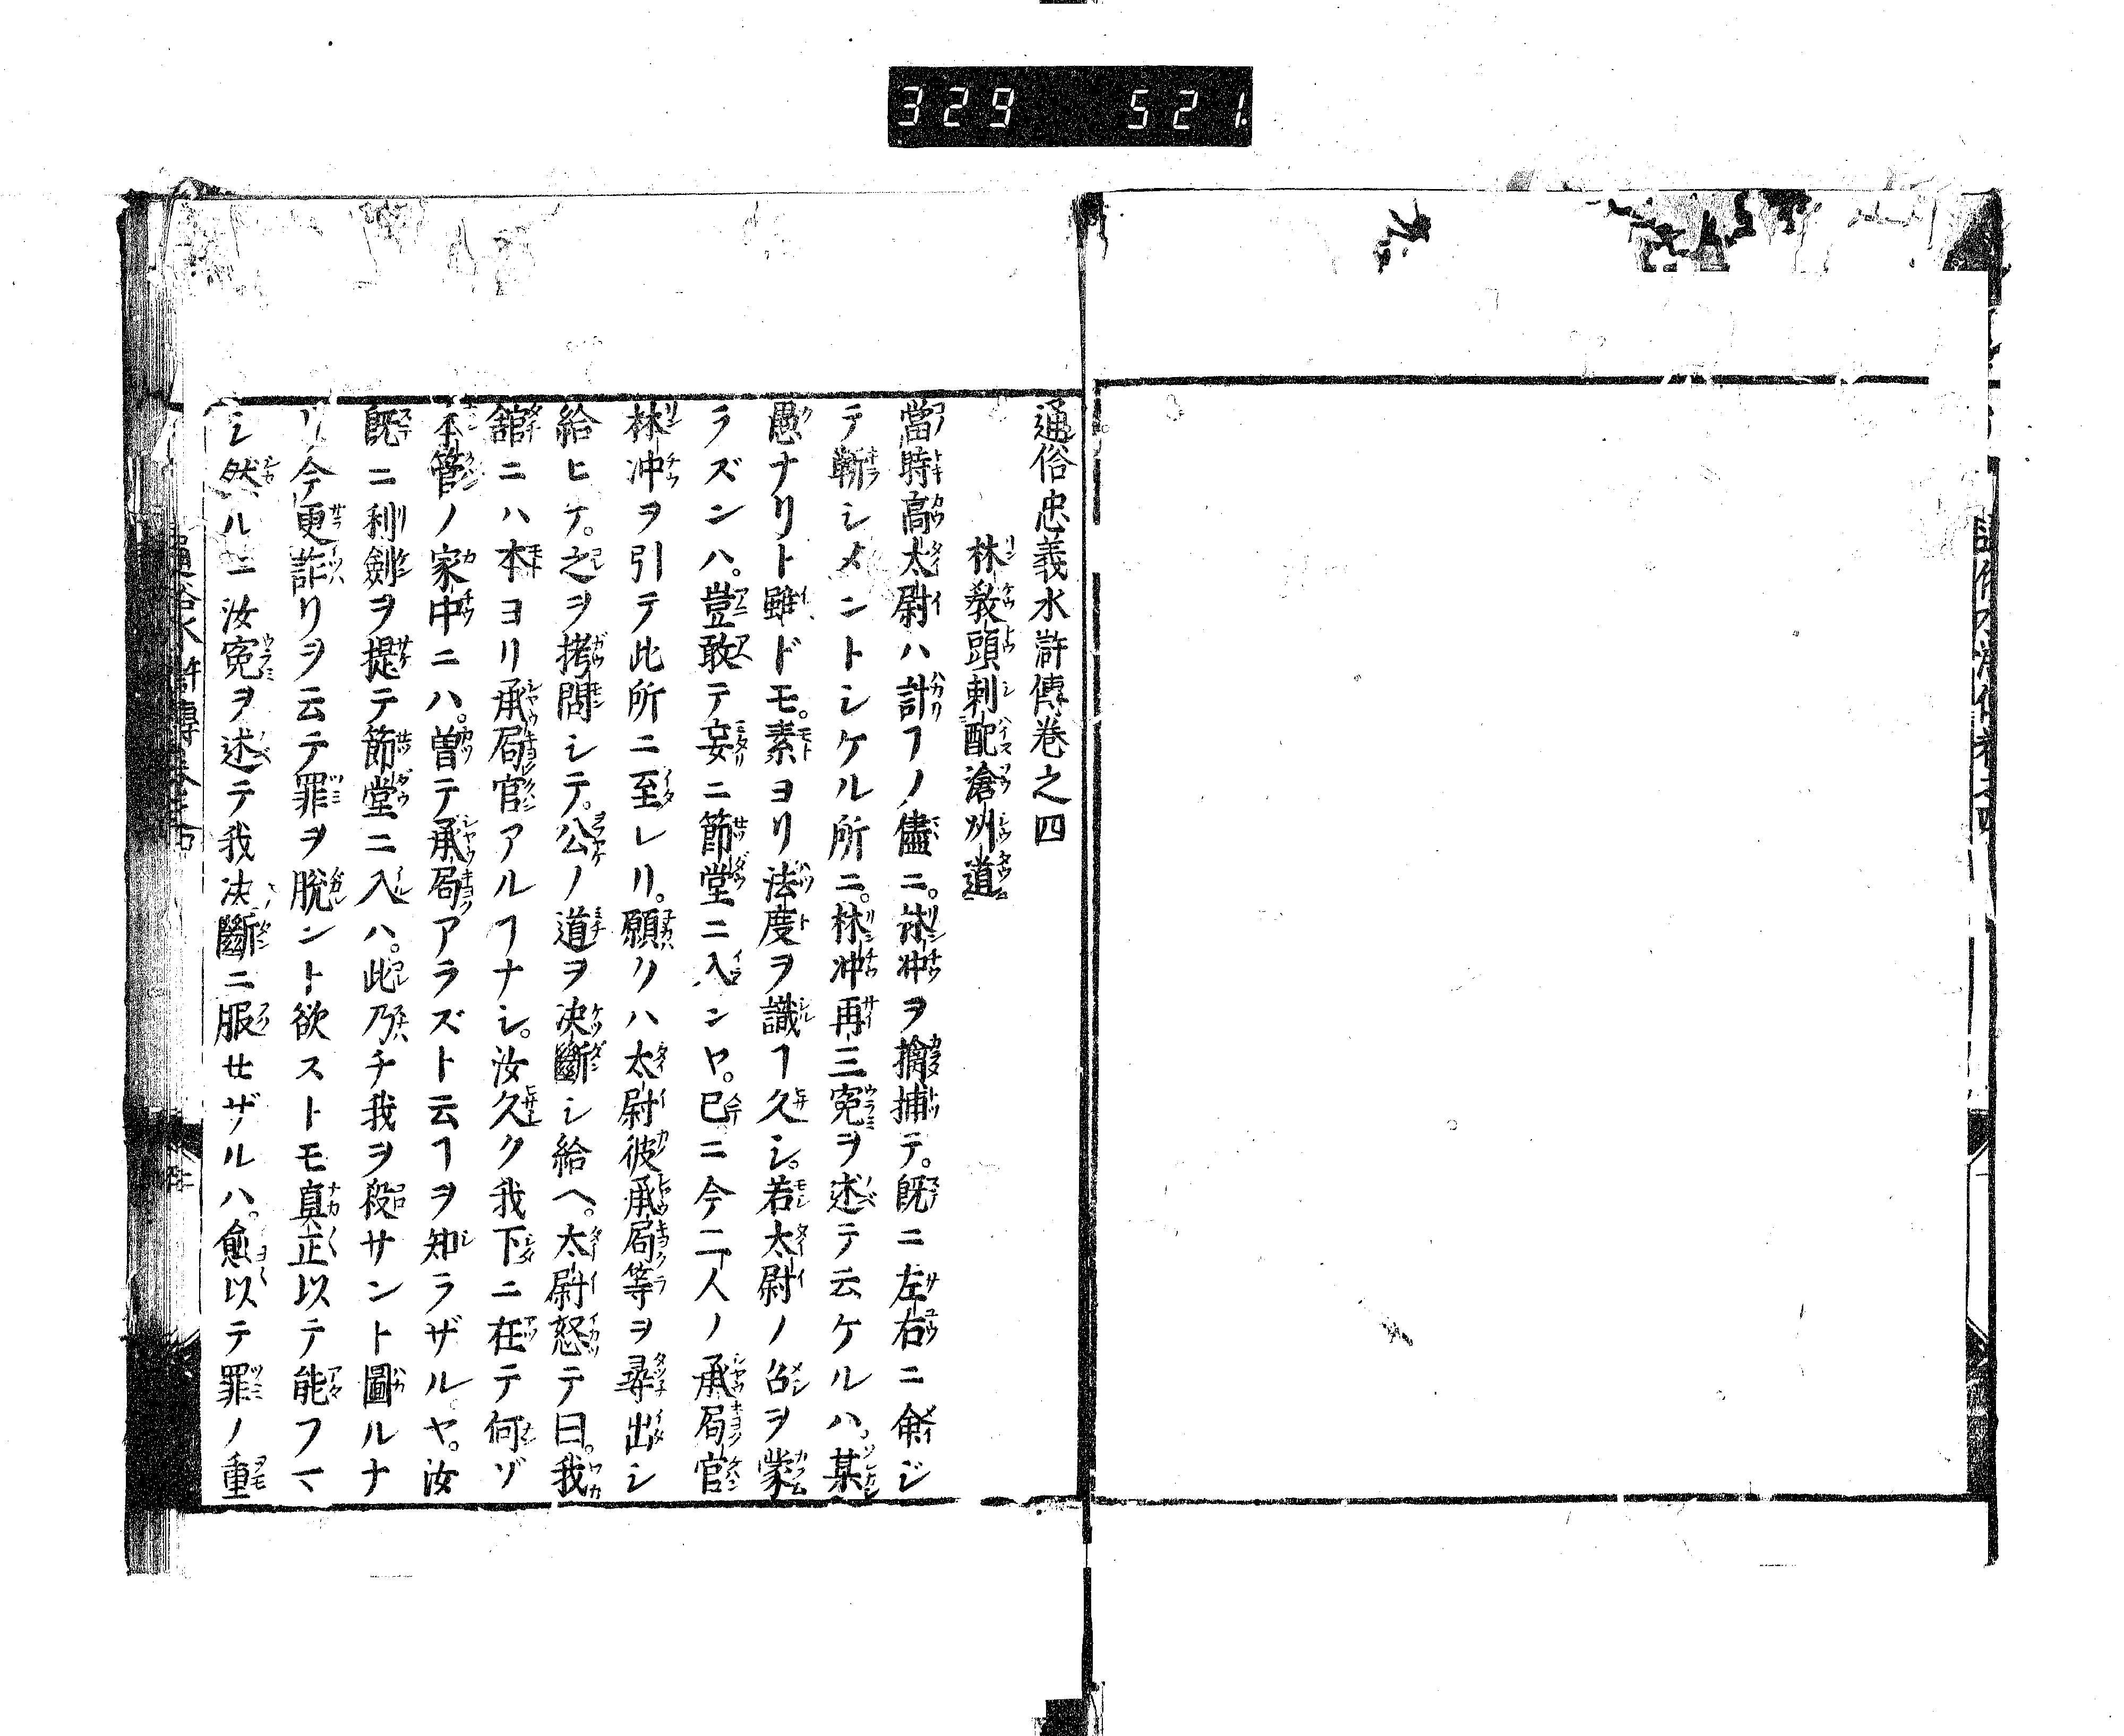 329 521.
通俗忠義水滸傳卷之四
林教頭刺配滄州道
當時高太尉ハ計フノ儘ニ。林冲ヲ擒捕テ。既ニ左右ニ命ジ
テ斬シメントシケル所ニ。林冲再三寃ヲ述テ云ケルハ。某
愚ナリト雖ドモ。素ヨリ法度ヲ識ヿ久シ。若太尉ノ召ヲ蒙
ラズンハ。豈敢テ妄ニ節堂ニ入ンヤ。已ニ今二人ノ承局官
林冲ヲ引テ此所ニ至レリ。願クハ太尉彼承局等ヲ尋出シ
給ヒケ。之ヲ拷問シテ。公ノ道ヲ决斷シ給ヘ。太尉怒テ曰。我
舘ニハ本ヨリ承局官アルヿナシ。汝久ク我下ニ在テ何ゾ
本管ノ家中ニハ。曽テ承局アラズト云ヿヲ知ラザルヤ。汝
既ニ利劍ヲ提テ節堂ニ入ハ。此乃チ我ヲ殺サント圖ルナ
リ今更詐リヲ云テ罪ヲ脫ント欲ストモ真正以テ能フマ
シ然ルニ汝寃ヲ述テ我决斷ニ服セザルハ。愈以テ罪ノ重
通俗水滸傳卷之四